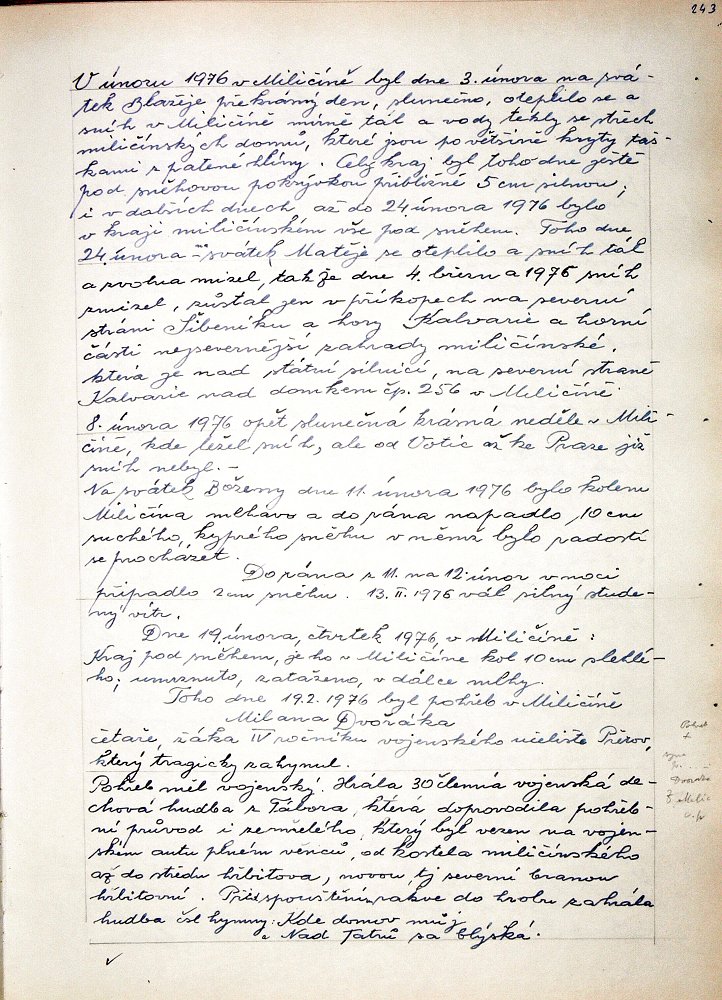 243
V únoru 1976 v Miličíně byl dne 3. února na svá-
tek Blažeje překrásný den, slunečno, oteplilo se a
sníh v Miličíně mírně tál a vody tékly se střech
miličínských domů, které jsou po většině kryty taš-
kami z pálené hlíny. Celý kraj byl toho dne ještě
pod sněhovou pokrývkou přibližně 5 cm silnou;
i v dalších dnech až do 24 února 1976 bylo
v kraji miličínském vše pod sněhem. Toho dne
24. února - svátek Matěje se oteplilo a sníh tál
a zvolna mizel, takže dne 4. března 1976 sníh
zmizel, zůstal jen v příkopech na severní
stráni Šibeníku a hory Kalvarie a horní
části nejsevernější zahrady miličínské,
která je nad státní silnicí, na severní straně
Kalvarie nad domkem čp. 256 v Miličíně.
8. února 1976 opět slunečná krásná neděle v Mili-
číně, kde ležel sníh, ale od Votic až ku Praze již
sníh nebyl. -
Na svátek Boženy dne 11. února 1976 bylo kolem
Miličína mlhavo a do rána napadlo 10 cm
suchého, kyprého sněhu v němž bylo radostí
se procházet.
Do rána z 11. na 12. únor v noci
připadlo 2 cm sněhu. 13. II. 1976 vál silný stude-
ný vítr.
Dne 19. února, čtvrtek 1976, v Miličíně:
Kraj pod sněhem, je ho v Miličíně kol 10 cm slehlé-
ho; umrznuto, zataženo, v dálce mlhy.
Toho dne 19.2. 1976 byl pohřeb v Miličíně
Milana Dvořáka
četaře, žáka IV ročníku vojenského učeliště Přerov,
který tragicky zahynul.
Pohřeb měl vojenský. Hrála 30 členná vojenská de-
chová hudba z Tábora, která doprovodila pohřeb-
ní průvod i zemřelého, který byl vezen na vojen-
ském autu plném věnců, od kostela miličínského
až do středu hřbitova, novou tj severní branou
hřbitovní. Při spouštění rakve do hrobu zahrála
hudba čsl hymny: Kde domov můj
a Nad Tatrů sa blýská.
Pohřeb
+
Dvořáka
z Milič